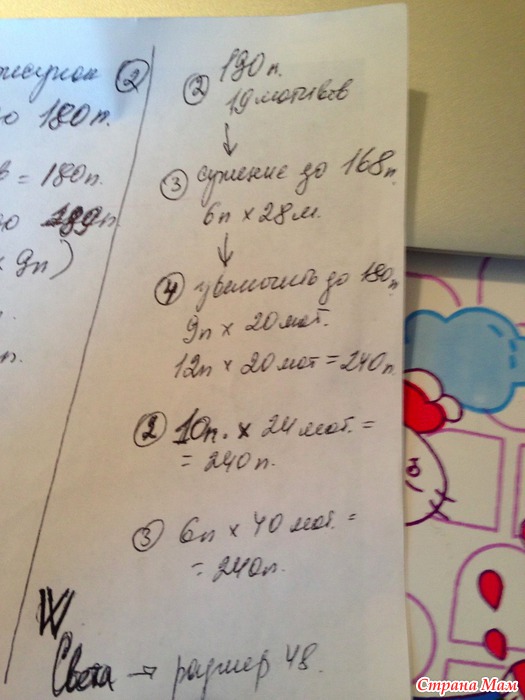 рисунок ②
до 180п.
= 180п.
до
х 9п)
п.
② 190п.
19 мотивов
↓
③ сужение до 168п.
6п х 28м.
↓
④ увеличить до 180п
9п х 20мот.
12п х 20мот = 240п.
② 10п. х 24мот. =
= 240п.
③ 6п х 40мот. =
= 240п.
Света → размер 48.
Страна Мам